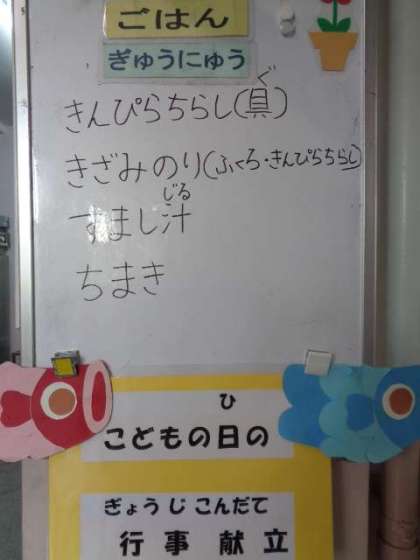 ごはん
ぎゅうにゅう
きんぴらちらし(具)
ぐ
きざみのり(ふくろ・きんぴらちらし)
じる
すまし汁
ちまき
ひ
こどもの日の
ぎょうじこんだて
行事献立